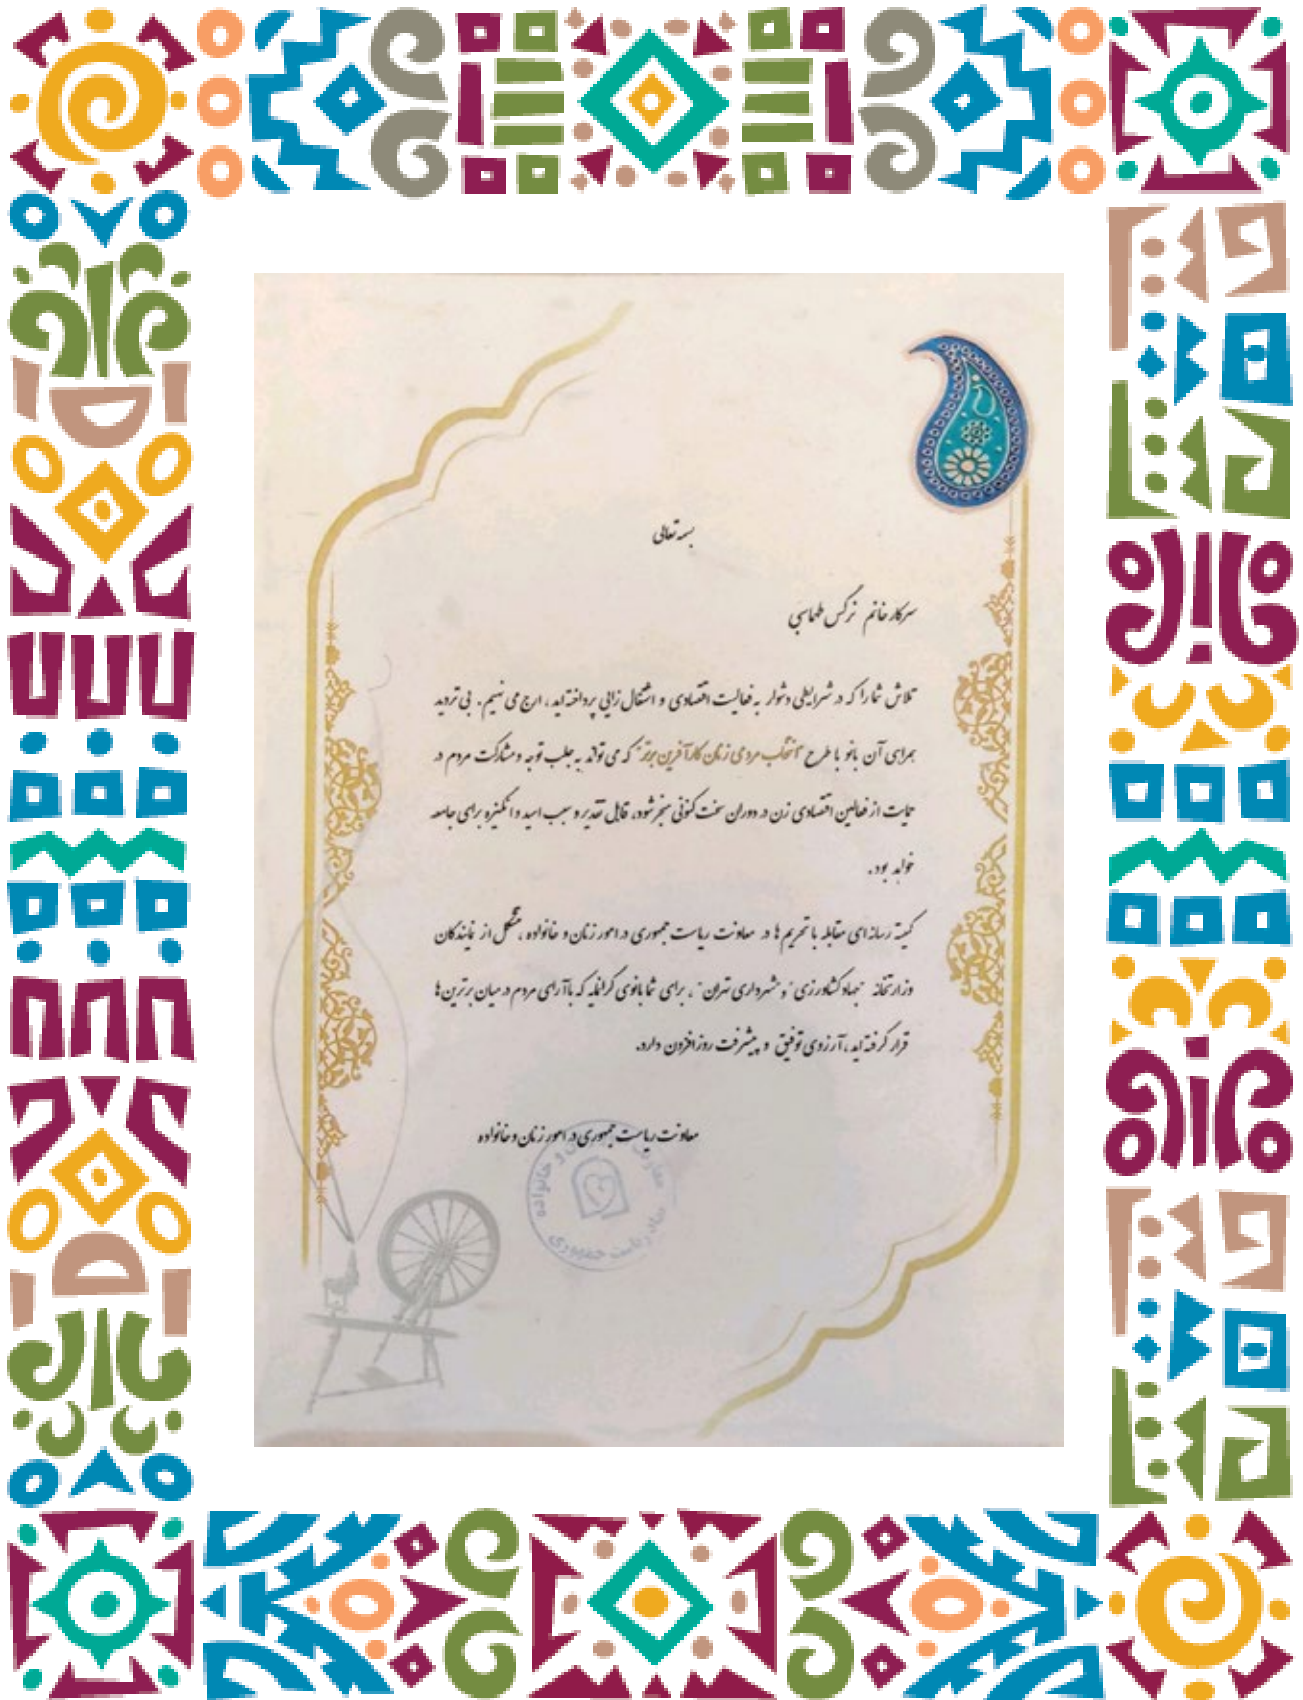 بسمه تعالی
سرکار خانم نرگس طهماسبی
تلاش شما را که در شرایطی دشوار به فعالیت اقتصادی و اشتغال زایی پرداخته اید، ارج می نهیم. بی تردید
همراهی آن بانو با طرح "انتخاب مردمی زنان کارآفرین برتر" که می تواند به جلب توجه و مشارکت مردم در
حمایت از فعالین اقتصادی زن در دوران سخت کنونی منجر شود، قابل تقدیر و سبب امید و انگیزه برای جامعه
خواهد بود.
کمیته رسانه ای مقابله با تحریم ها در معاونت ریاست جمهوری در امور زنان و خانواده، متشکل از نمایندگان
وزارتخانه "جهاد کشاورزی" و "شهرداری تهران"، برای شما بانوی گرانمایه که با آرای مردم در میان برترین ها
قرار گرفته اید، آرزوی توفیق و پیشرفت روزافزون دارد.
معاونت ریاست جمهوری در امور زنان و خانواده